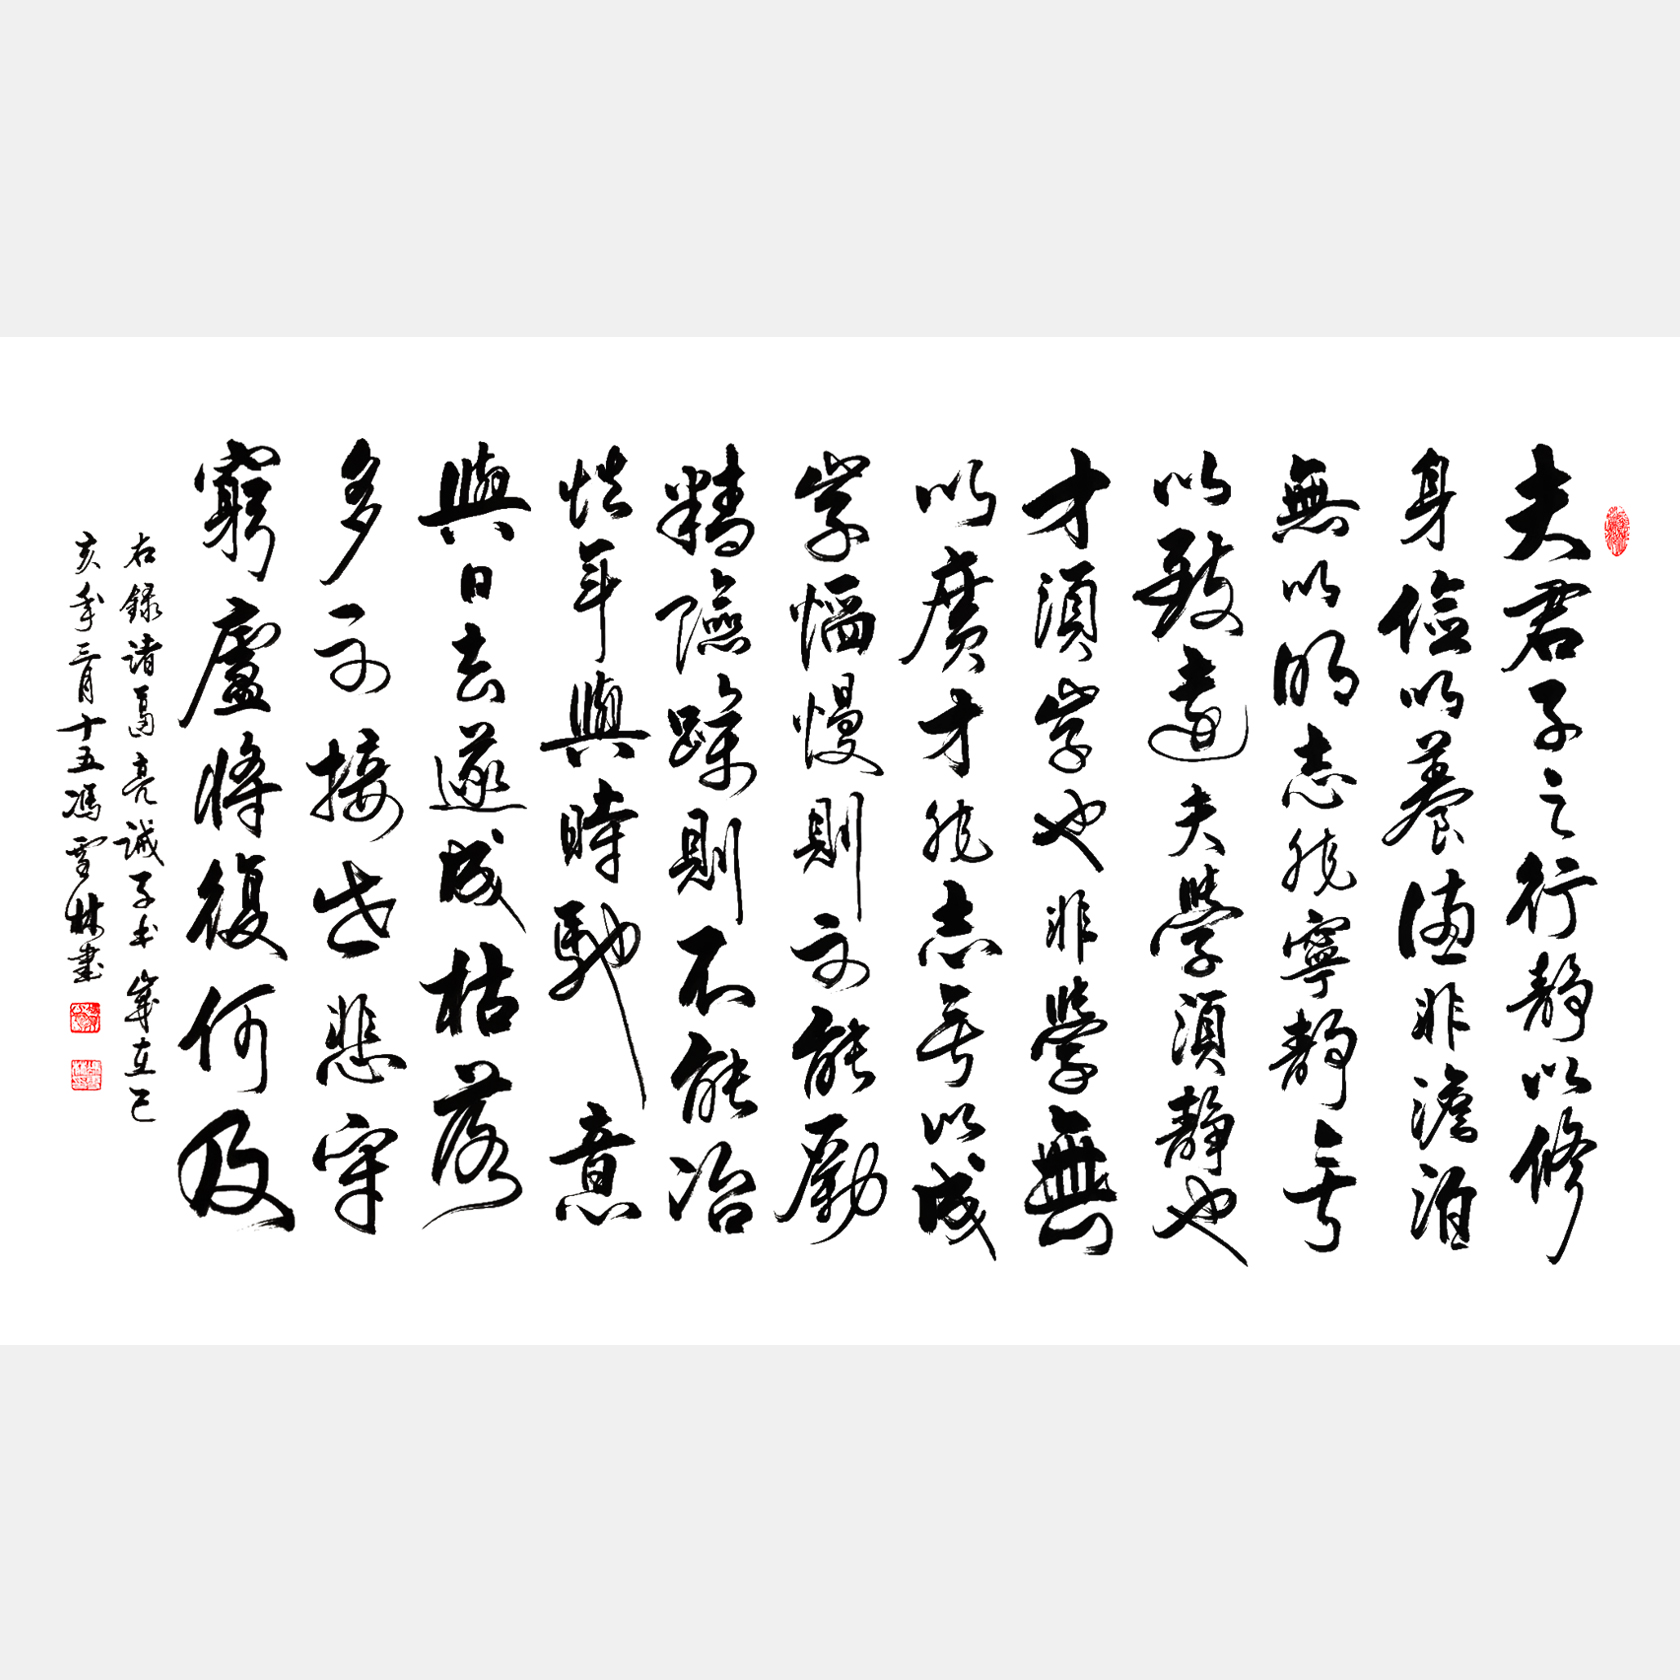 夫君子之行静以修
身儉以養德非澹泊
無以明志非寧静无
以致遠夫學須静也
才須学也非學無
以廣才非志无以成
学慆慢則不能勵
精險躁則不能治
性年與時馳意
與日去遂成枯落
多不接世悲守
窮廬將復何及
右録諸葛亮誡子书歲在己
亥年三月十五馮雪林書